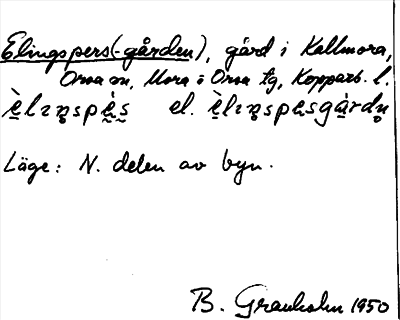 Elingspers(-gården), gård i Kallmora,
Orsa sn, Mora o Orsa tg, Kopparb. l.
ὲlıŋspὲs el. ὲlıŋspɛsgàrdn̥
Läge: N. delen av byn.
B. Granholm 1950